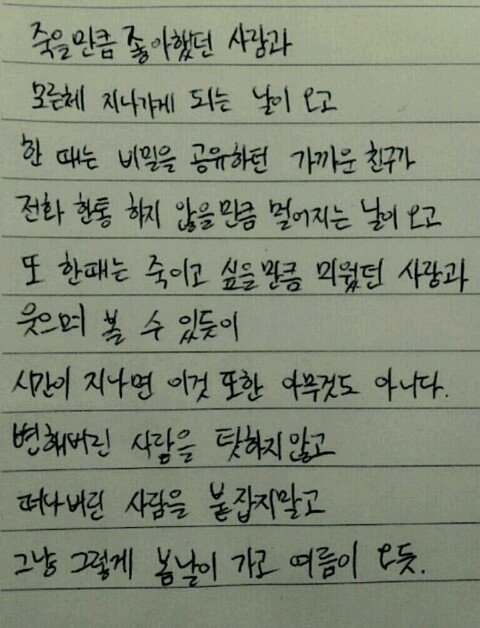 죽을만큼 좋아했던 사람과
모른체 지나가게 되는 날이 오고
한 때는 비밀을 공유하던 가까운 친구가
전화 한통 하지 않을만큼 멀어지는 날이 오고
또 한때는 죽이고 싶을만큼 미웠던 사람과
웃으며 볼 수 있듯이
시간이 지나면 이것 또한 아무것도 아니다.
변해버린 사람을 탓하지않고
떠나버린 사람을 붙잡지말고
그냥 그렇게 봄날이 가고 여름이 오듯.